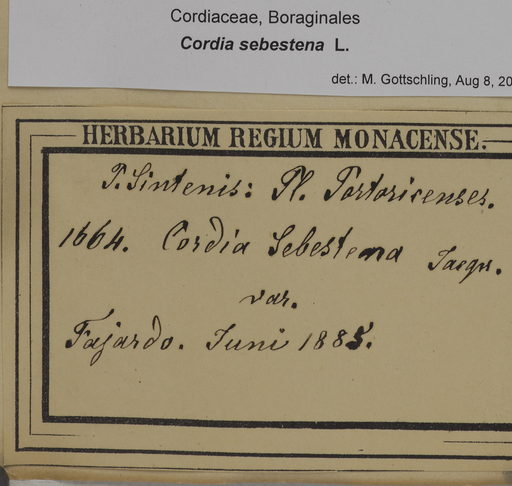 Cordiaceae, Boraginales
Cordia sebestena L.
det.: M. Gottschling, Aug 8, 20
HERBARIUM REGIUM MONACENSE.
P. Sintenis: Pl. Portoricenses.
1664. Cordia Sebestena Jacqu.
var.
Fajardo. Juni 1885.